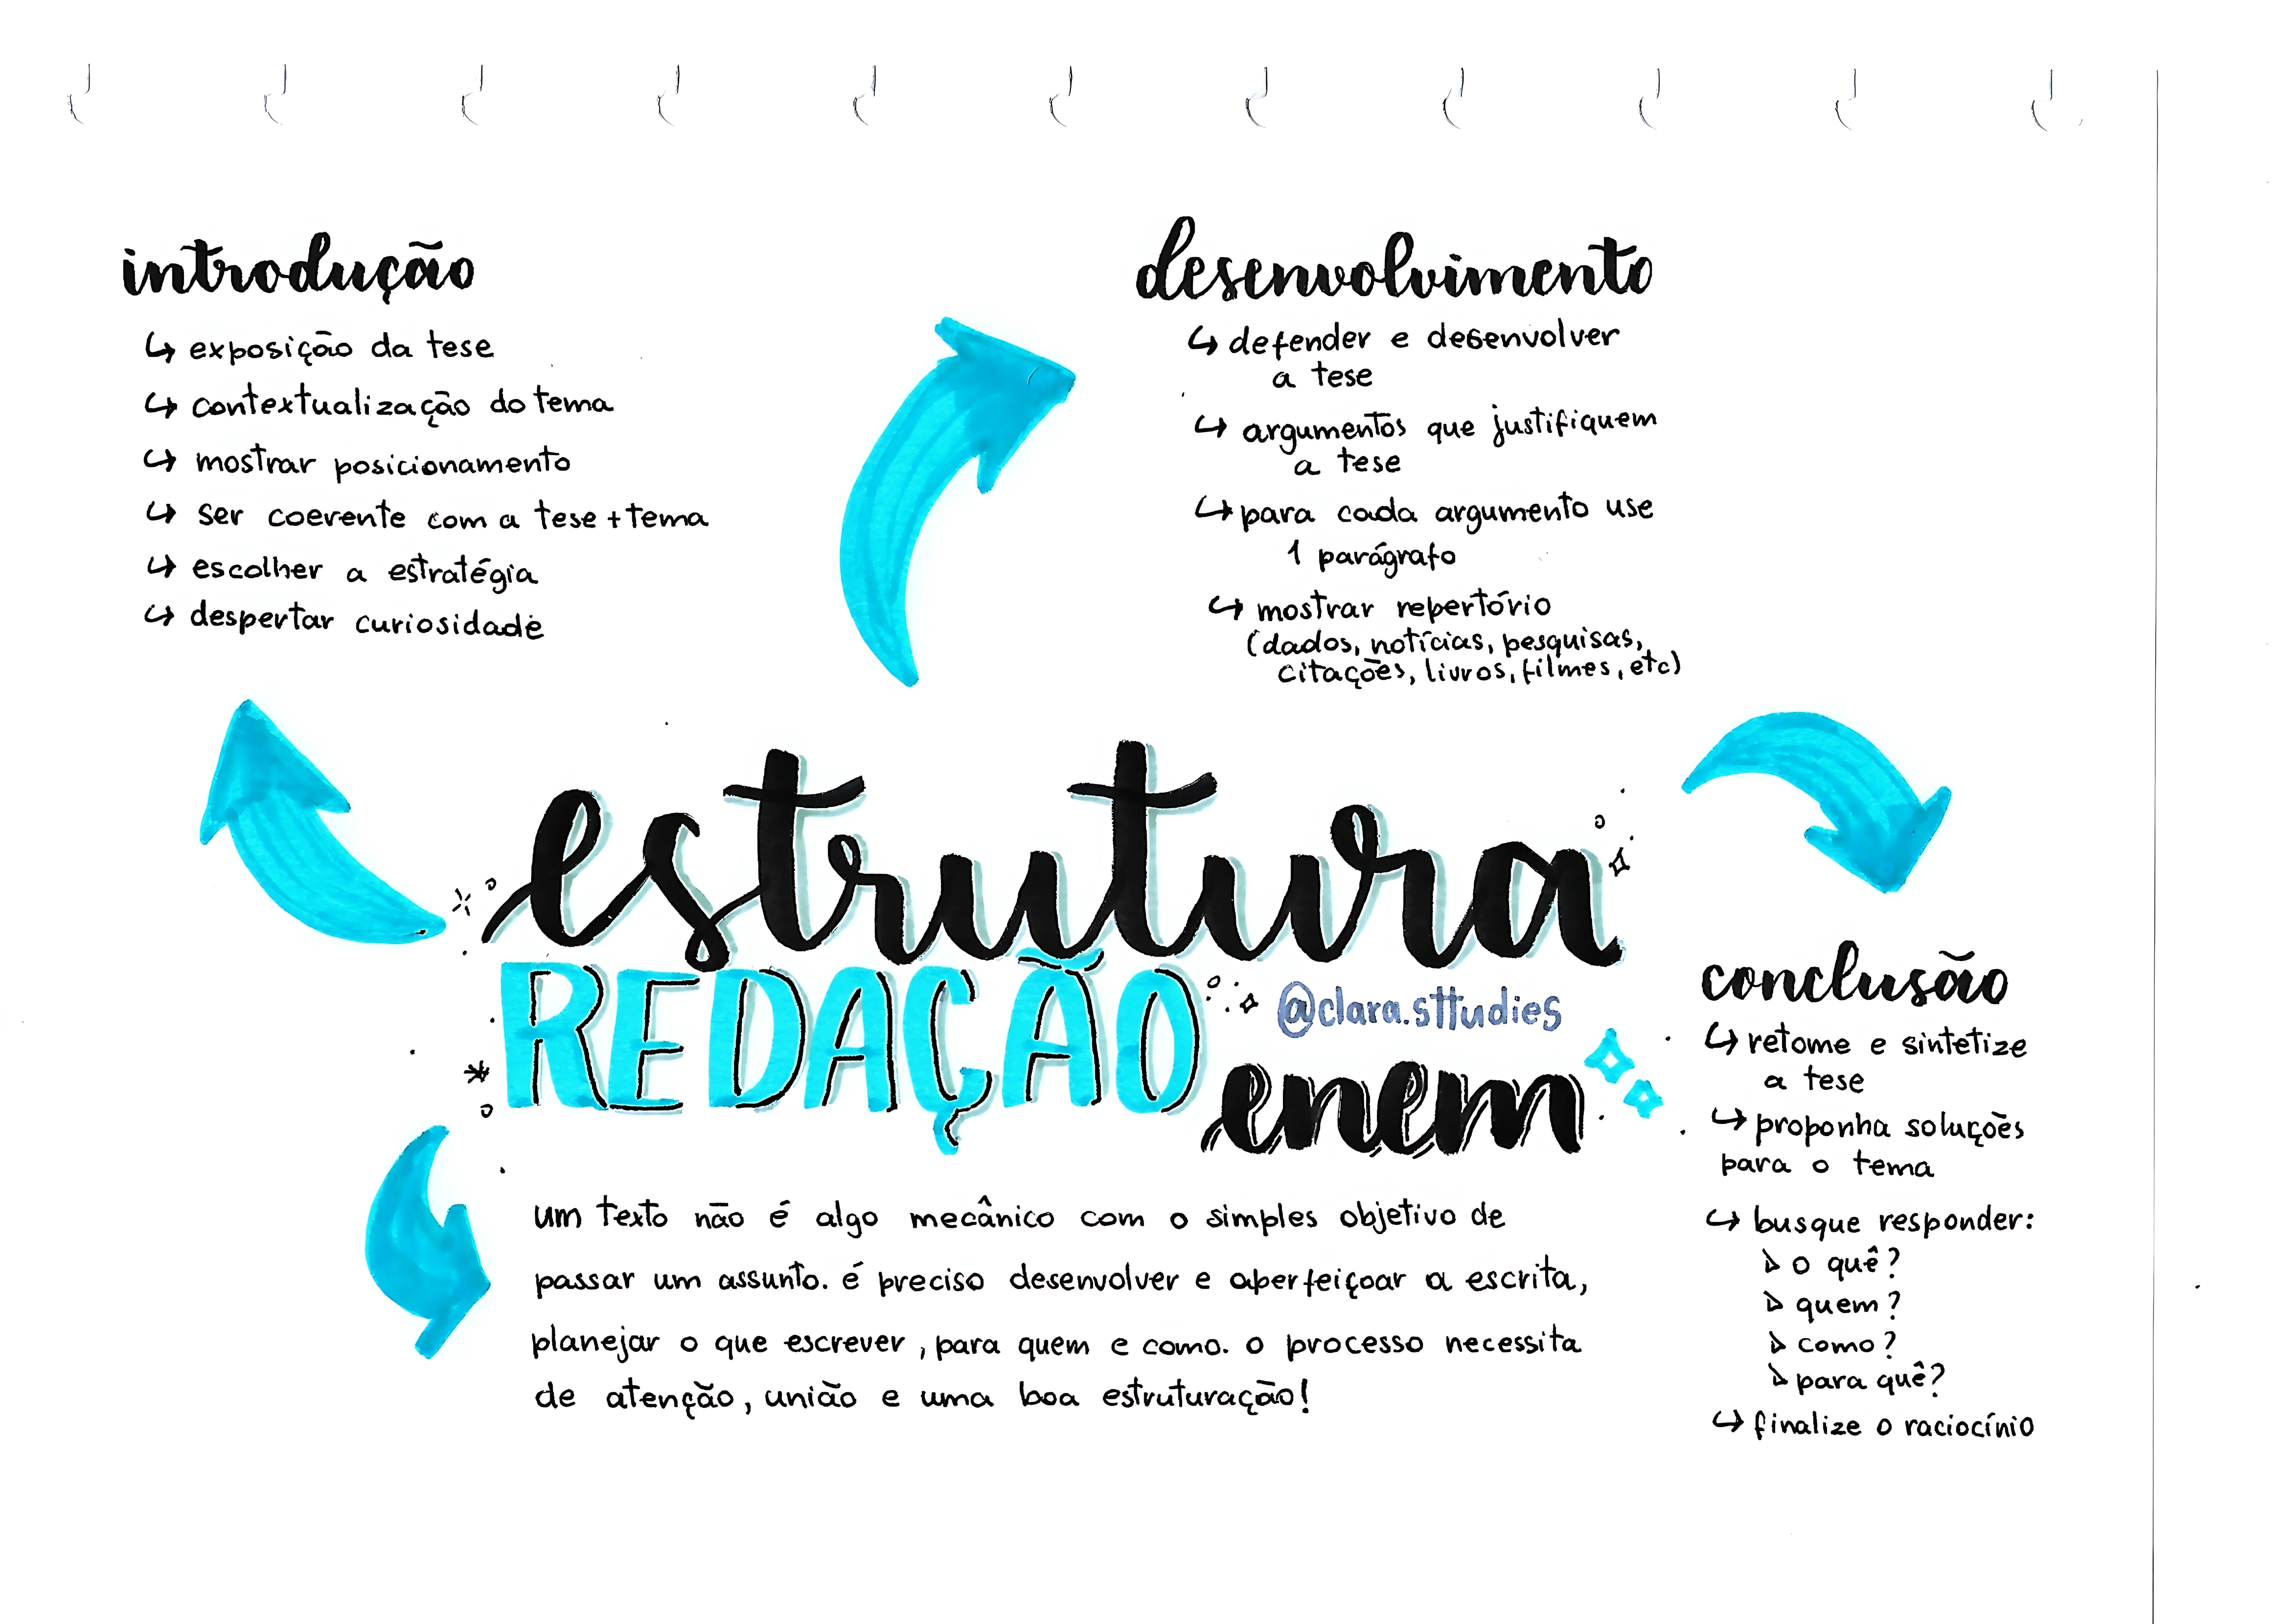 introdução
↳ exposição da tese
↳ contextualização do tema
↳ mostrar posicionamento
↳ ser coerente com a tese + tema
↳ escolher a estratégia
↳ despertar curiosidade
desenvolvimento
↳ defender e desenvolver
a tese
↳ argumentos que justifiquem
a tese
↳ para cada argumento use
1 parágrafo
↳ mostrar repertório
(dados, notícias, pesquisas,
citações, livros, filmes, etc)
estrutura
REDAÇÃO
@clara.sttudies
enem
um texto não é algo mecânico com o simples objetivo de
passar um assunto. é preciso desenvolver e aperfeiçoar a escrita,
planejar o que escrever, para quem e como. o processo necessita
de atenção, união e uma boa estruturação!
conclusão
↳ retome e sintetize
a tese
↳ proponha soluções
para o tema
↳ busque responder:
o quê?
quem?
como?
para quê?
↳ finalize o raciocínio